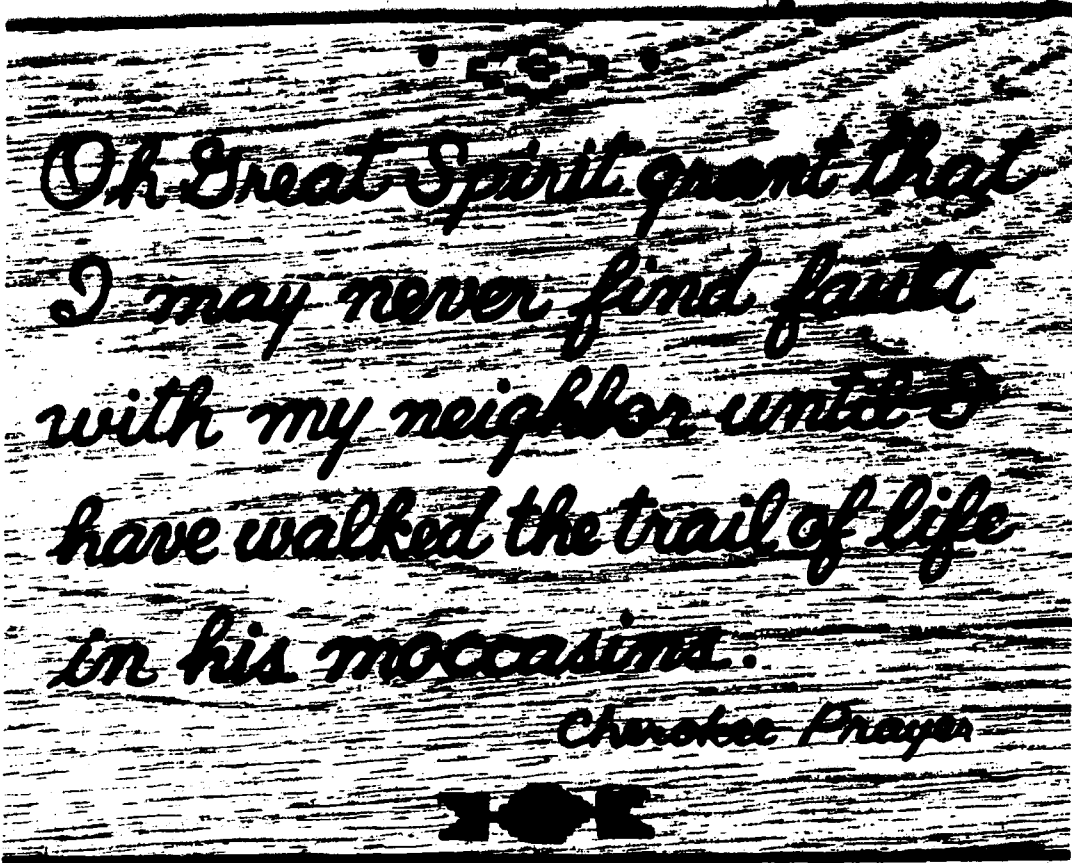 Oh Great Spirit grant that
I may never find fault
with my neighbor until I
have walked the trail of life
in his moccasins.
Cherokee Prayer